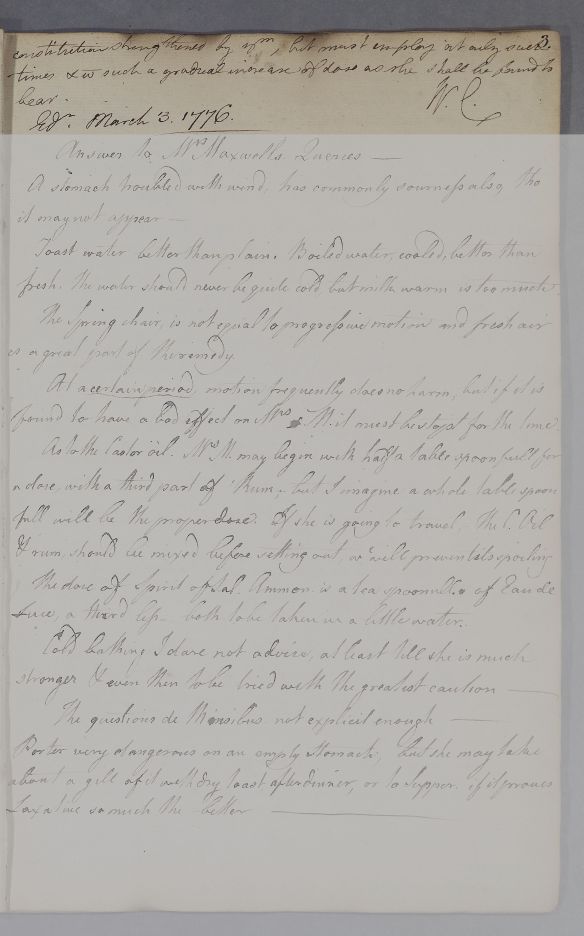 3
constitution strengthened by ym, but must employ it only such
times & w such a gradual increase of dose as she shall be found to
bear.
W. C.
Edr. March 3. 1776.
Answer to Mrs Maxwells Queries —
A stomach troubled with wind, has commonly sourness also, tho
it may not appear —
Toast water better than plain. Boiled water, cooled, better than
fresh. The water should never be quite cold but milk warm is too much
The Spring chair, is not equal to progressive motion and fresh air
is a great part of the remedy
At a certain period, motion frequently does no harm, but if it is
found to have a bad effect on Mrs M. it must be stopt for the time
As to the Castor oil. Mrs M. may begin with half a table spoonfull for
a dose, with a third part of Rum, but I imagine a whole table spoon
full will be the proper dose. If she is going to travel, the C. Oil
& rum, should be mixed before setting out, wc will prevent its spoiling
The dose of Spirit of Sal. Ammon. is a tea spoonull. of Eau de
Luce, a third less — both to be taken in a little water.
Cold bathing I dare not advise, at least till she is much
stronger & even then to be tried with the greatest caution —
The questions de Mensibus not explicit enough —
Porter very dangerous on an empty Stomach, but she may take
about a gill of it with dry toast after dinner, or to Supper. if it proves
Laxative so much the better —